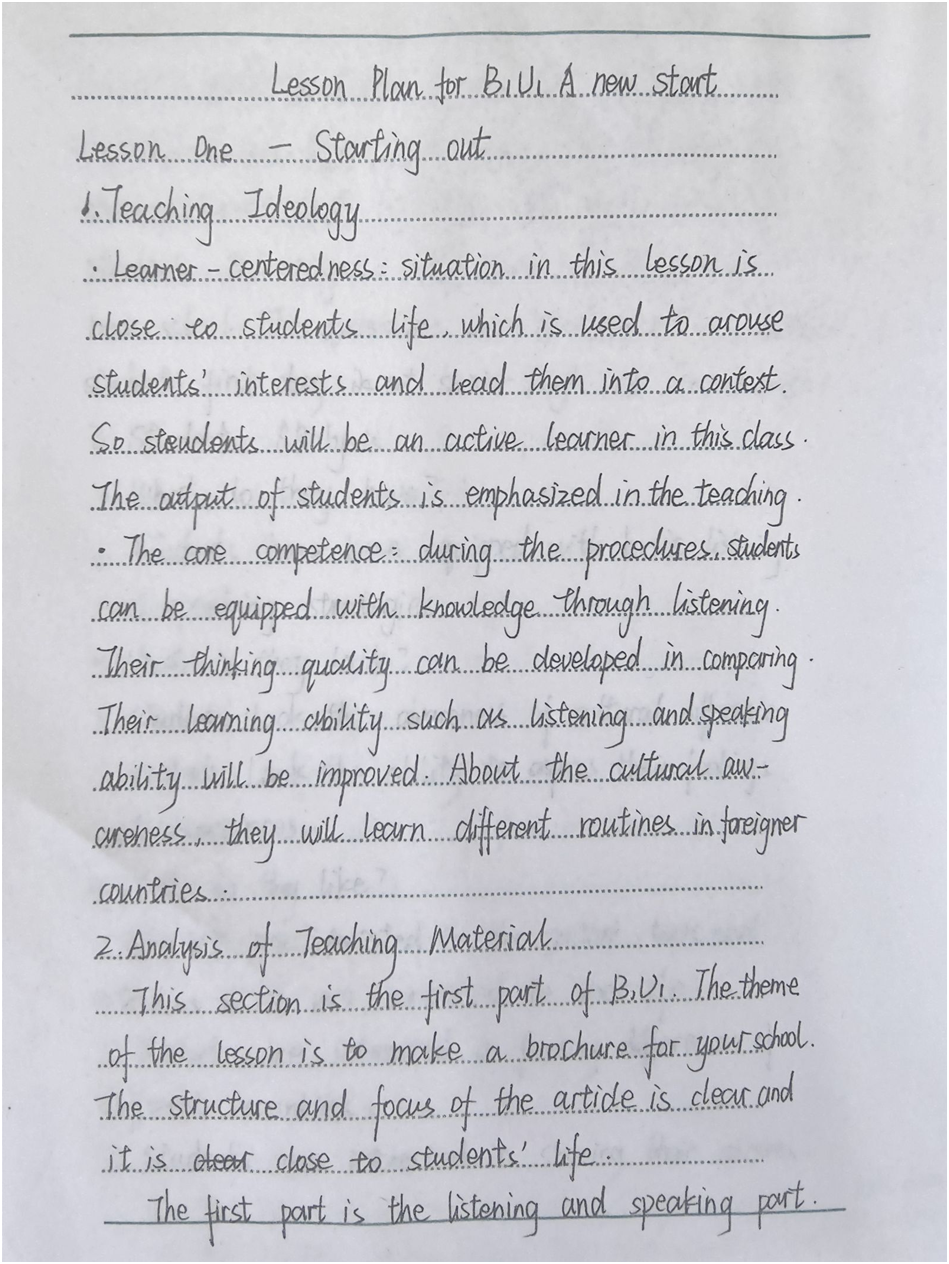 Lesson Plan for B1U1 A new start
Lesson One - Starting out
1. Teaching Ideology
· Learner-centeredness: situation in this lesson is
close to students life, which is used to arouse
students' interests and lead them into a context.
So steudents will be an active learner in this class.
The output of students is emphasized in the teaching.
· The core competence: during the procedures, students
can be equipped with knowledge through listening.
Their thinking quality can be developed in comparing.
Their learning ability such as listening and speaking
ability will be improved. About the cultural aw-
areness, they will learn different routines in foreigner
countries.
2. Analysis of Teaching Material
This section is the first part of B1U1. The theme
of the lesson is to make a brochure for your school.
The structure and focus of the article is clear and
it is close to students' life.
The first part is the listening and speaking part.